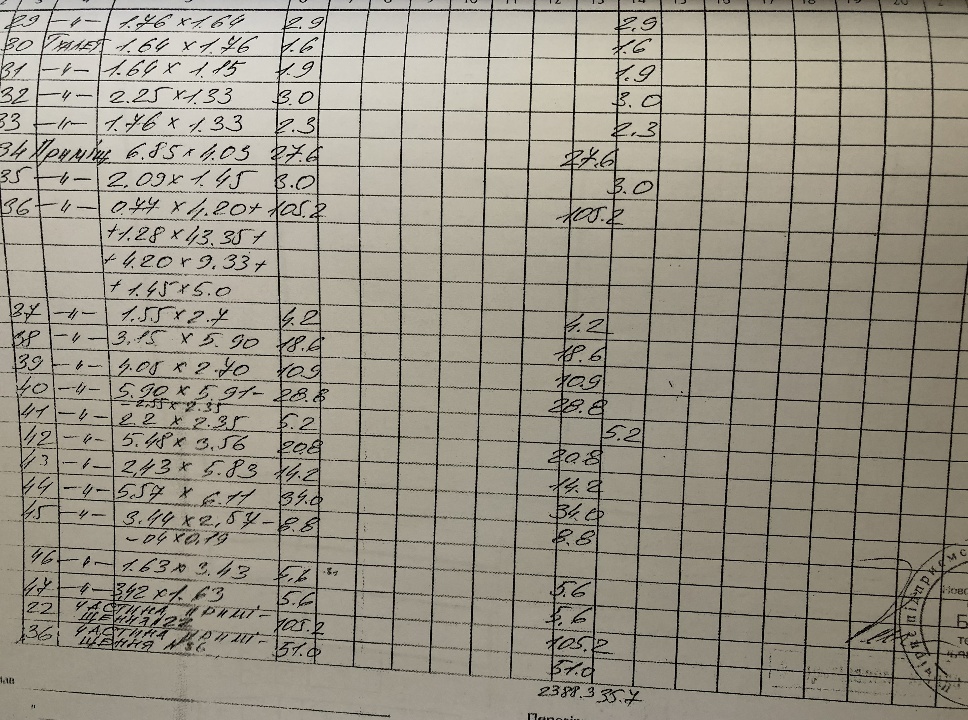 29 -"- 1.76 × 1.64 2.9 2.9
30 Туалет 1.64 × 1.76 1.6 1.6
31 -"- 1.64 × 1.15 1.9 1.9
32 -"- 2.25 × 1.33 3.0 3.0
33 -"- 1.76 × 1.33 2.3 2.3
34 Приміщ 6.85 × 4.03 27.6 27.6
35 -"- 2.09 × 1.45 3.0 3.0
36 -"- 0.77 × 4.20 + 105.2 105.2
+ 1.28 × 43.35 +
+ 4.20 × 9.33 +
+ 1.45 × 5.0
37 -"- 1.55 × 2.7 4.2 4.2
38 -"- 3.15 × 5.90 18.6 18.6
39 -"- 4.05 × 2.70 10.9 10.9
40 -"- 5.90 × 5.91 - 28.8 28.8
- 2.55 × 2.35
41 -"- 2.2 × 2.35 5.2 5.2
42 -"- 5.48 × 3.56 20.8 20.8
43 -"- 2,43 × 5.83 14.2 14.2
44 -"- 5.57 × 6.11 34.0 34.0
45 -"- 3.44 × 2.57 - 8.8 8.8
- 04 × 0.19
46 -"- 1.63 × 3.43 5.6 5.6
47 -"- 342 × 1.63 5.6 5,6
22 ЧАСТИНА ПРИМІ-
ЩЕННЯ 22 105.2 105.2
36 ЧАСТИНА ПРИМІ-
ЩЕННЯ №36 51.0 51.0
2388.3 35.7